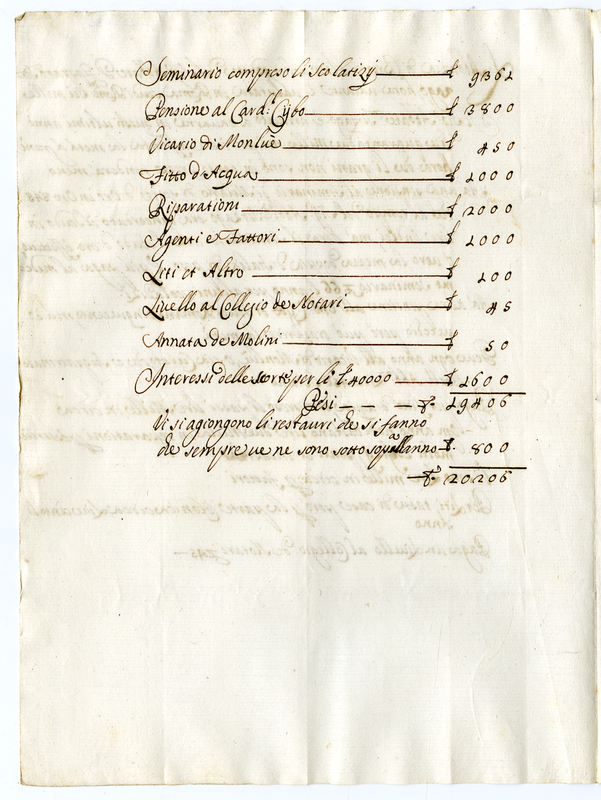 Seminario compreso li scolatizÿ — £ 9361
Pensione al Card.l Cÿbo — £ 3800
Vicario di Monluè — £ 450
Fitto d'Acqua — £ 1000
Riparationi — £ 2000
Agenti e Fattori — £ 1000
Liti et Altro — £ 100
Livello al Collegio de Notari — £ 45
Annata de Molini — £ 50
Interessi delle scorte per li £ 40000 — £ 1600
Pesi — — — £ 19406
Vi si agiongono li restauri che si fanno
che sempre ve ne sono sotto sopra l'anno £. 800
£ 20206